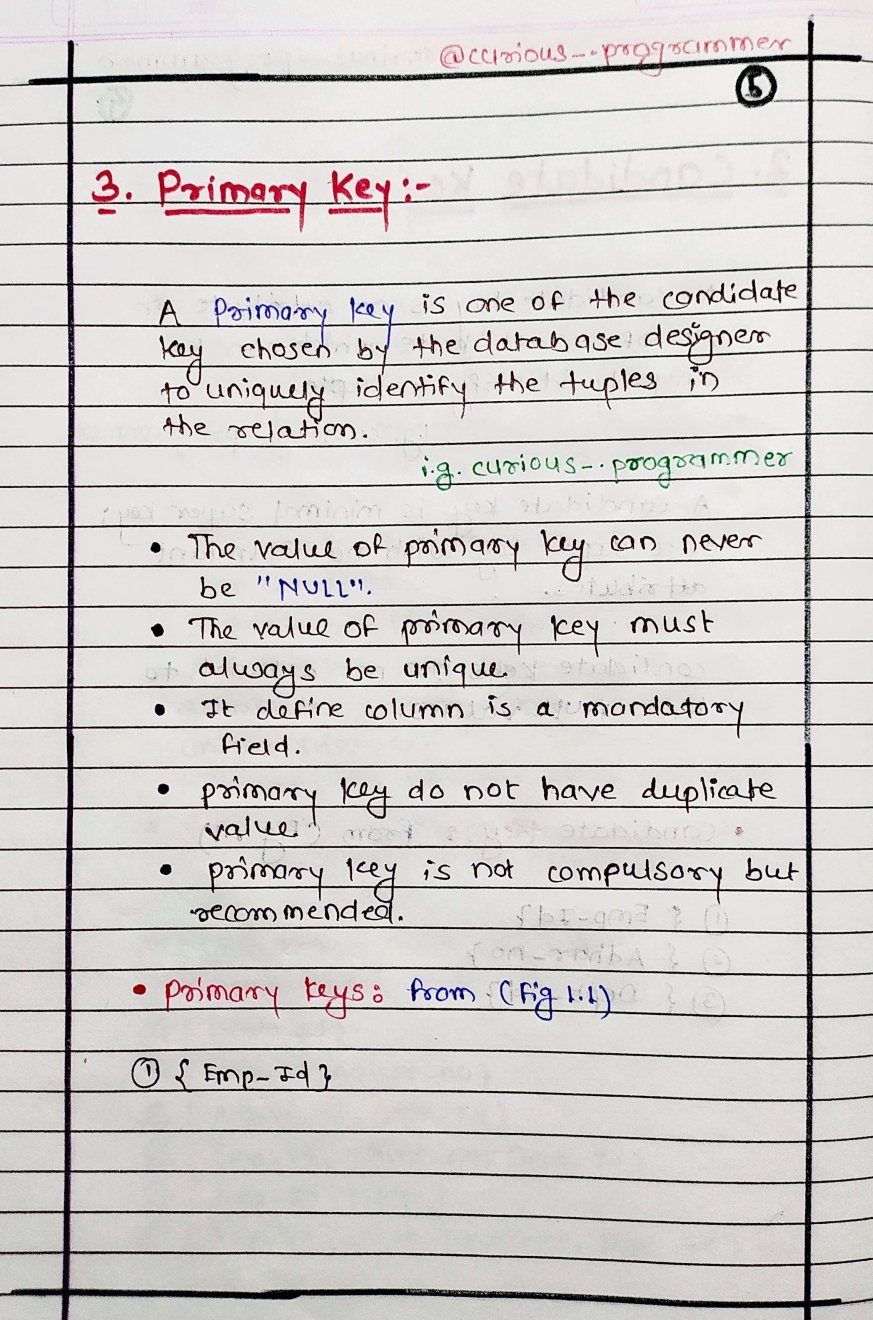 @curious_._.programmer
5
3. Primary Key:-
A Primary key is one of the candidate
key chosen by the database designer
to uniquely identify the tuples in
the relation.
i.g. curious_._.programmer
• The value of primary key can never
be "NULL".
• The value of primary key must
always be unique.
• It define column is a mandatory
field.
• primary key do not have duplicate
value.
• primary key is not compulsory but
recommended.
• Primary keys: from (fig 1.1)
① { Emp_Id }